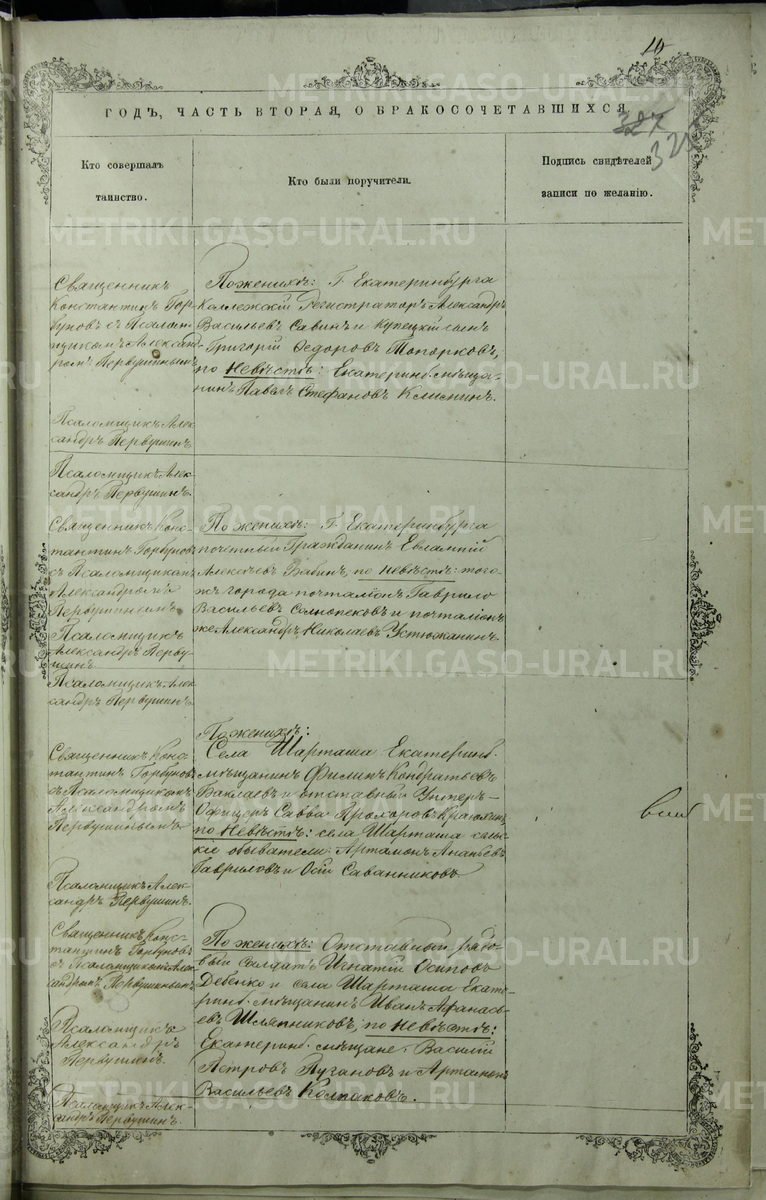 10
ГОДЪ, ЧАСТЬ ВТОРАЯ, О БРАКОСОЧЕТАВШИХСЯ
327
Кто совершалъ
таинство.
Кто были поручители.
Подпись свидѣтелей
записи по желанію.
Священникъ
Константинъ Гор-
буновъ съ Псалом-
щикомъ Александ-
ромъ Первушинымъ
По женихѣ: Г. Екатеринбурга
Коллежскій Регистраторъ Александръ
Васильевъ Савинъ и купецкій сынъ
Григорій Ѳедоровъ Топорковъ,
по Невѣстѣ: Екатеринб. мѣща-
нинъ Павелъ Стефановъ Климинъ.
Псаломщикъ Алек-
сандръ Первушинъ
Псаломщикъ Алек-
сандръ Первушинъ.
Священникъ Конс-
тантинъ Горбуновъ
съ Псаломщикомъ
Александромъ
Первушинымъ
По женихѣ: Г. Екатеринбурга
почетный Гражданинъ Евлампій
Алексѣевъ Бабинъ, по невѣстѣ: того-
жъ города почталіонъ Гаврило
Васильевъ Солнопековъ и почталіонъ
же Александръ Николаевъ Устюжанинъ.
Псаломщикъ
Александръ Перву-
шинъ
Псаломщикъ Алек-
сандръ Первушинъ.
Священникъ Конс-
тантинъ Горбуновъ
съ Псаломщикомъ
Александромъ
Первушинымъ
По женихѣ:
Села Шарташа Екатеринб.
мѣщанинъ Филипъ Кондратьевъ
и отставной Унтеръ-
Офицеръ Савва Прохоровъ
по Невѣстѣ: села Шарташа сельс-
кіе обыватели: Артамонъ Ананьевъ
Гавриловъ и Осипъ Саванниковъ.
Псаломщикъ Алек-
сандръ Первушинъ.
Священникъ Конс-
тантинъ Горбуновъ
съ Псаломщикомъ Алек-
сандромъ Первушинымъ
По женихѣ: Отставный рядо-
вый Солдатъ Игнатій Осиповъ
Дебенко и села Шарташа Екате-
ринб. мѣщанинъ Иванъ Афанась-
евъ Шляпниковъ, по Невѣстѣ:
Екатеринб. мѣщане: Василій
Петровъ Пугановъ и Артамонъ
Васильевъ Колпаковъ.
Псаломщикъ
Александръ
Первушинъ.
Псаломщикъ Алек-
сандръ Первушинъ.
METRIKI.GASO-URAL.RU